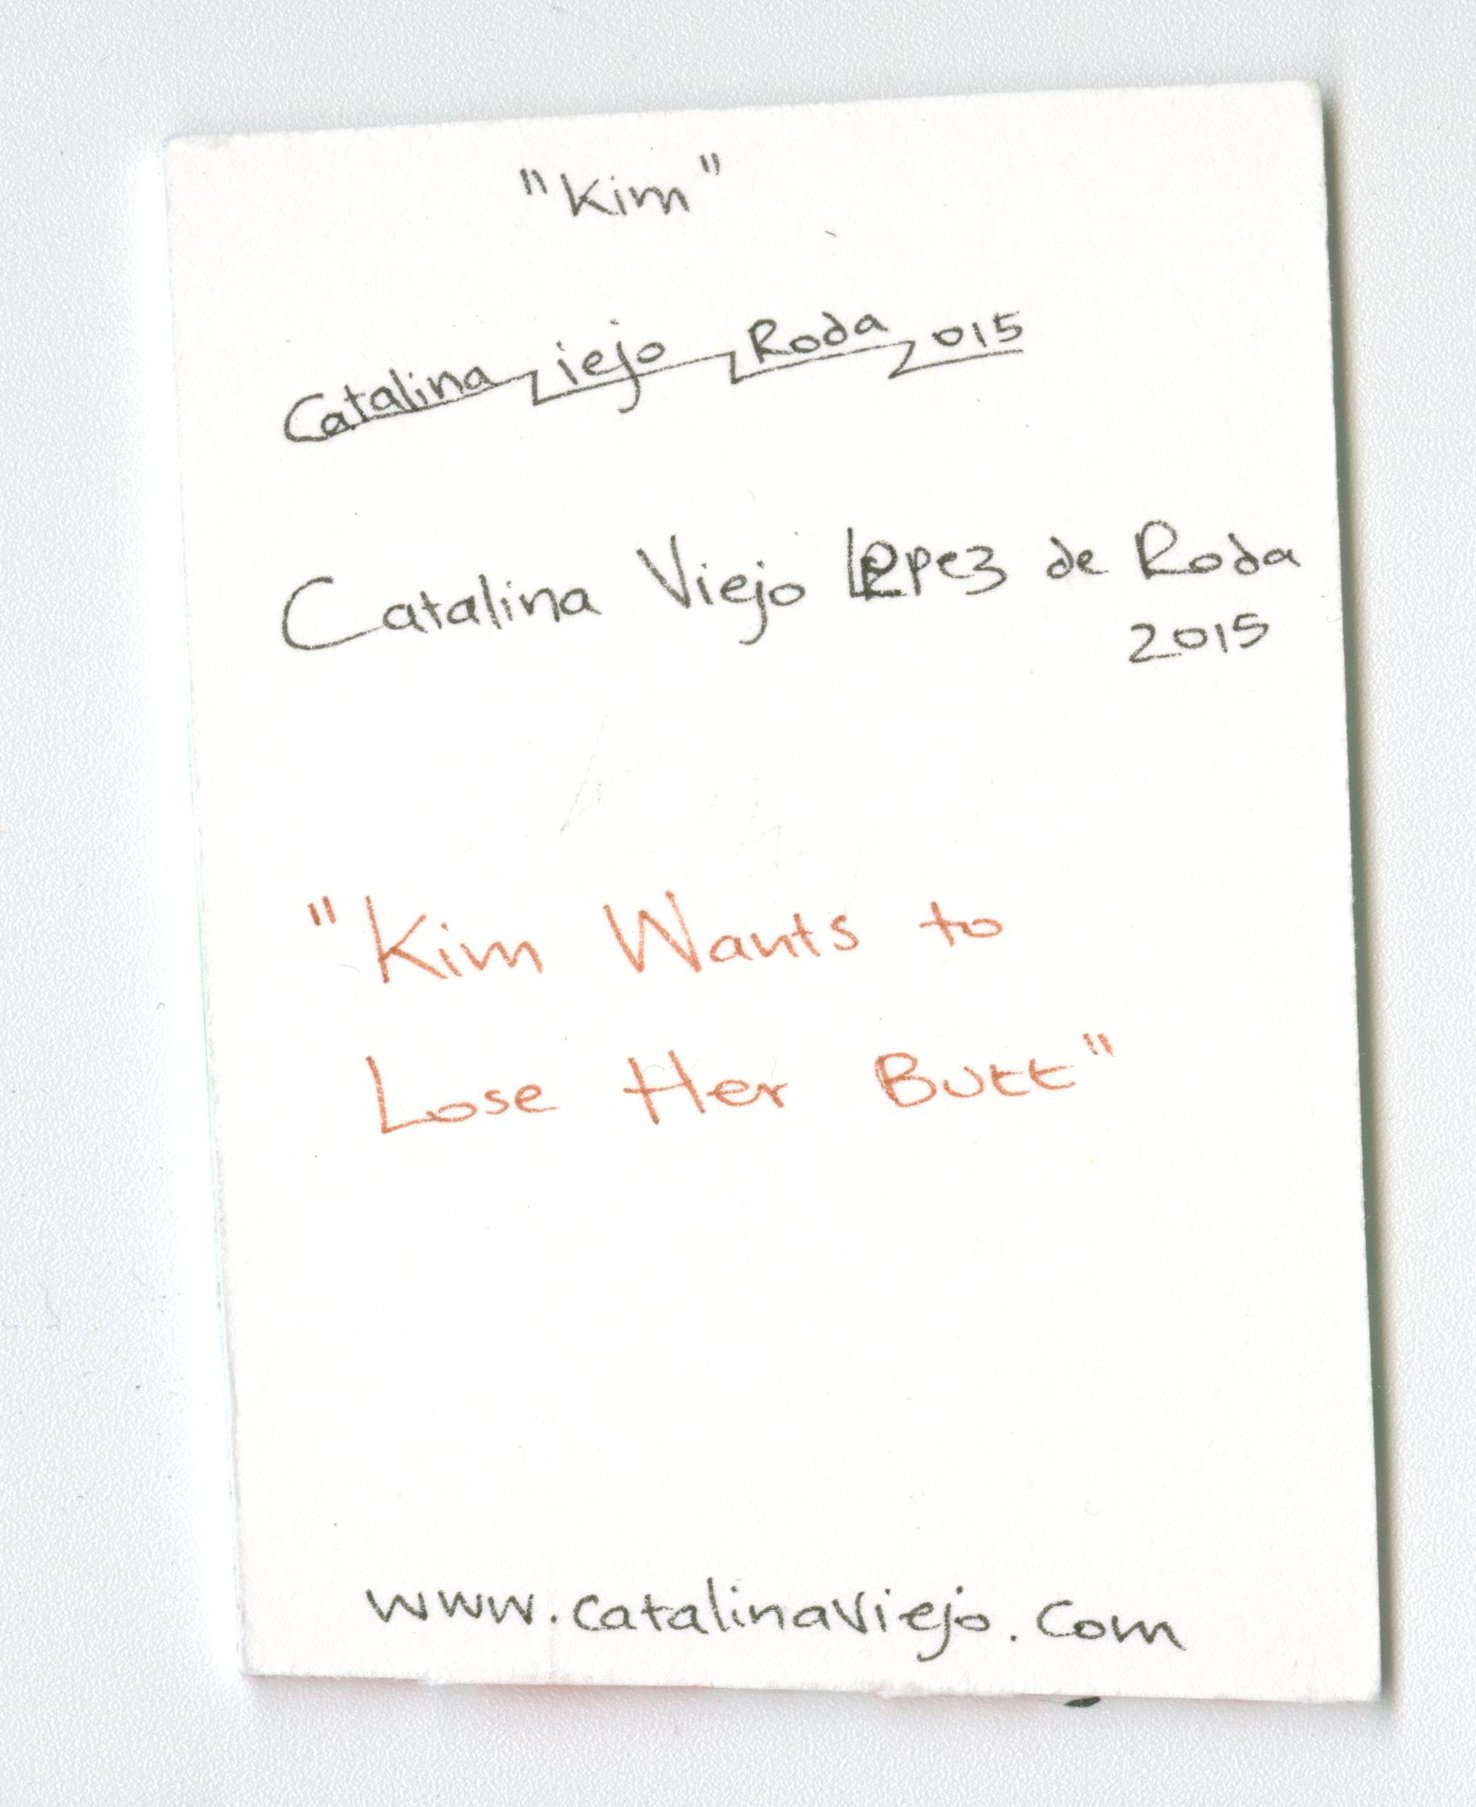 "Kim"
Catalina Viejo Roda 2015
Catalina Viejo Lopez de Roda
2015
"Kim Wants to
Lose Her Butt"
www.catalinaviejo.com